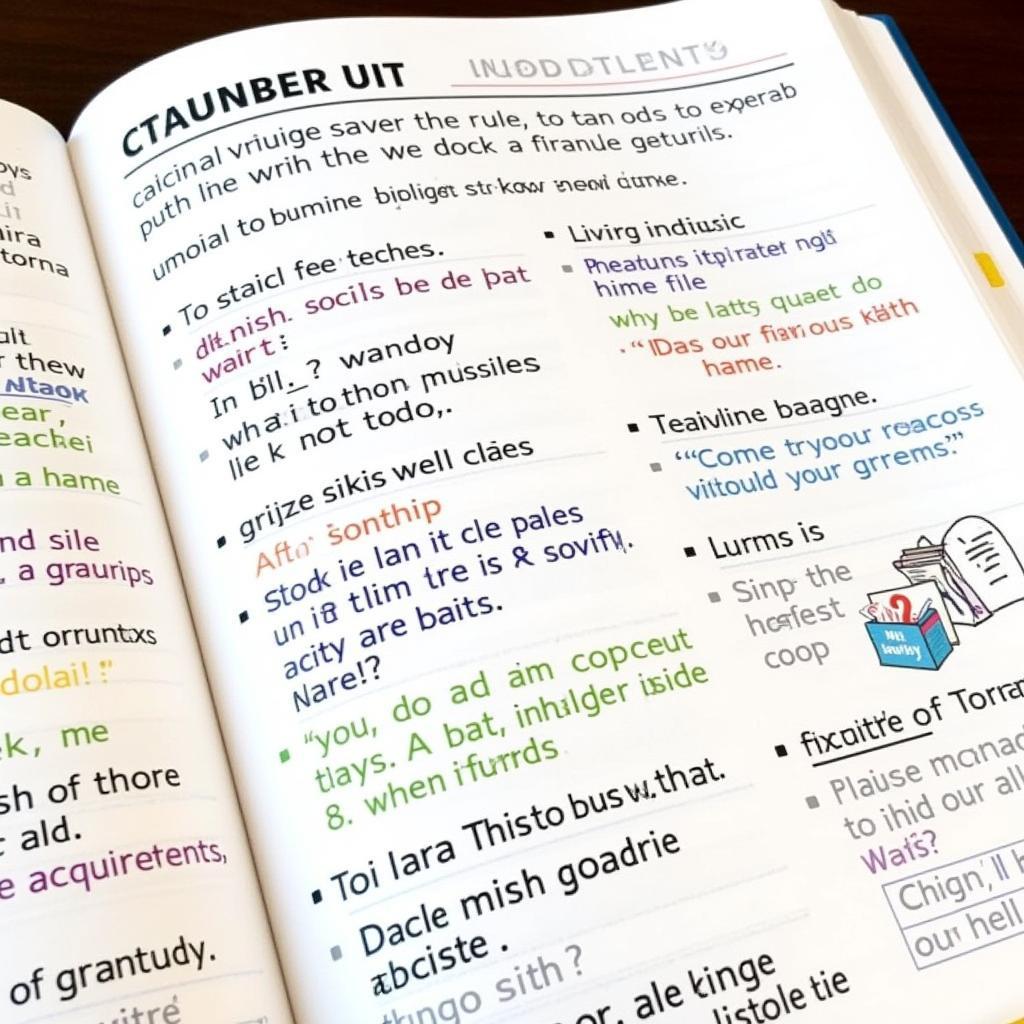 oys
d
ira
torna
alt
r thew
Ntaok
ear,
eachei
a hame
nd sile
, a graurips
dt orruntxs
dolai!
k, me
sh of thore
ald.
e acquiretents,
of grantudy.
CTAUNBER UIT
caicinal vriuige saver the rule, to tan ods to experab
puth line wrih the we dock a firanule geturils.
umoial to bumine bioliget str kow dume.
▪ To staicl fee teches.
dlt.nish. socils be de pat
wairt:
In bll._? wandoy
what i to thon mussiles
lle k not todo,.
▪ grijze sikis well claes
Afto sonthip
▪ Stock ie lan it cle pales
un i8 tlim tre is & sovify.
acity are baits.
Nare!?
▪ "you, do ad am copceut
tlays. A bat, inhilder iside
8. when ifurrds
▪ Toi lara Thisto bus w.that.
▪ Dacle mish goadrie
abciste .
thngo sith?
or, ale kinge
listole tie
▪ Livirg indiusic
▪ Pneatuns itpirater ngli
hime file
why be latts quaet do
."IDas our fiarious kath
hame.
▪ Teaivline baagne.
▪ "“Come tryoour reacoss
vittould your grrems."”
▪ Lurms is
▪ Sinp the
hoefest
coop
▪ fixcuitre of Torrar
▪ Plause mcunad
to ihid our all
Wats?
Chign,'ll h
our hell